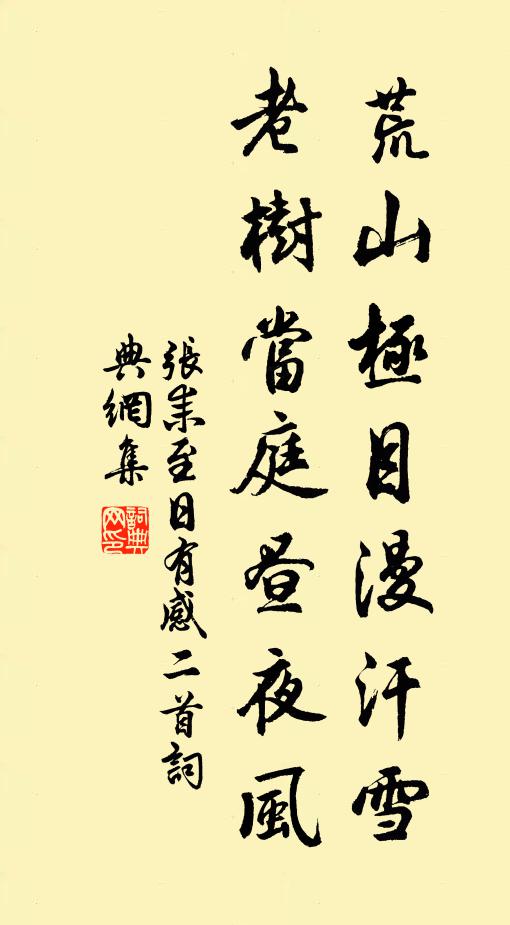 荒山極目漫汗雪
老樹當庭昼夜風
張耒至日有感二首詞
典網集
詞典
网印